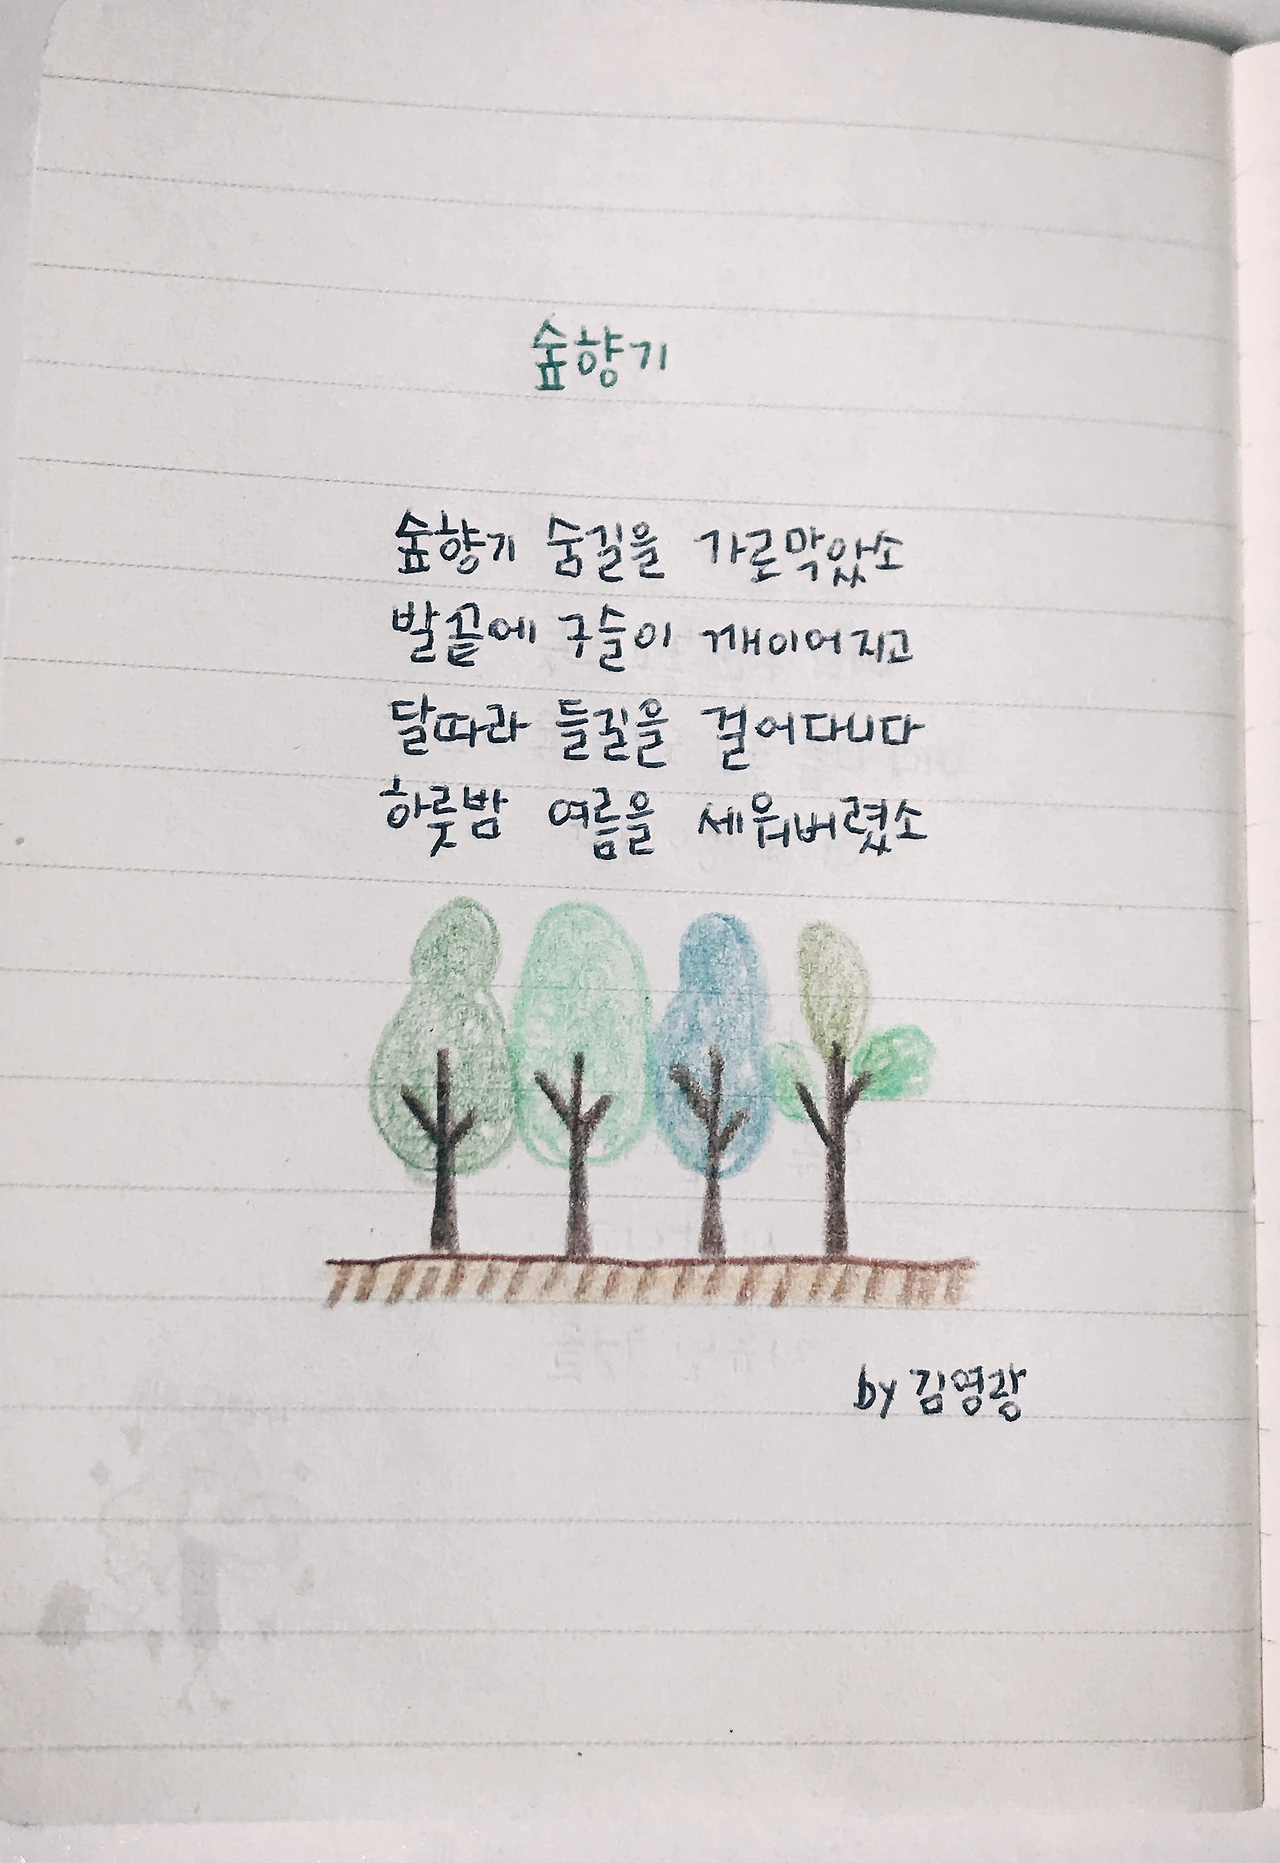 숲향기
숲향기 숨길을 가로막았소
발끝에 구슬이 깨이어지고
달따라 들길을 걸어다니다
하룻밤 여름을 세워버렸소
by 김영랑